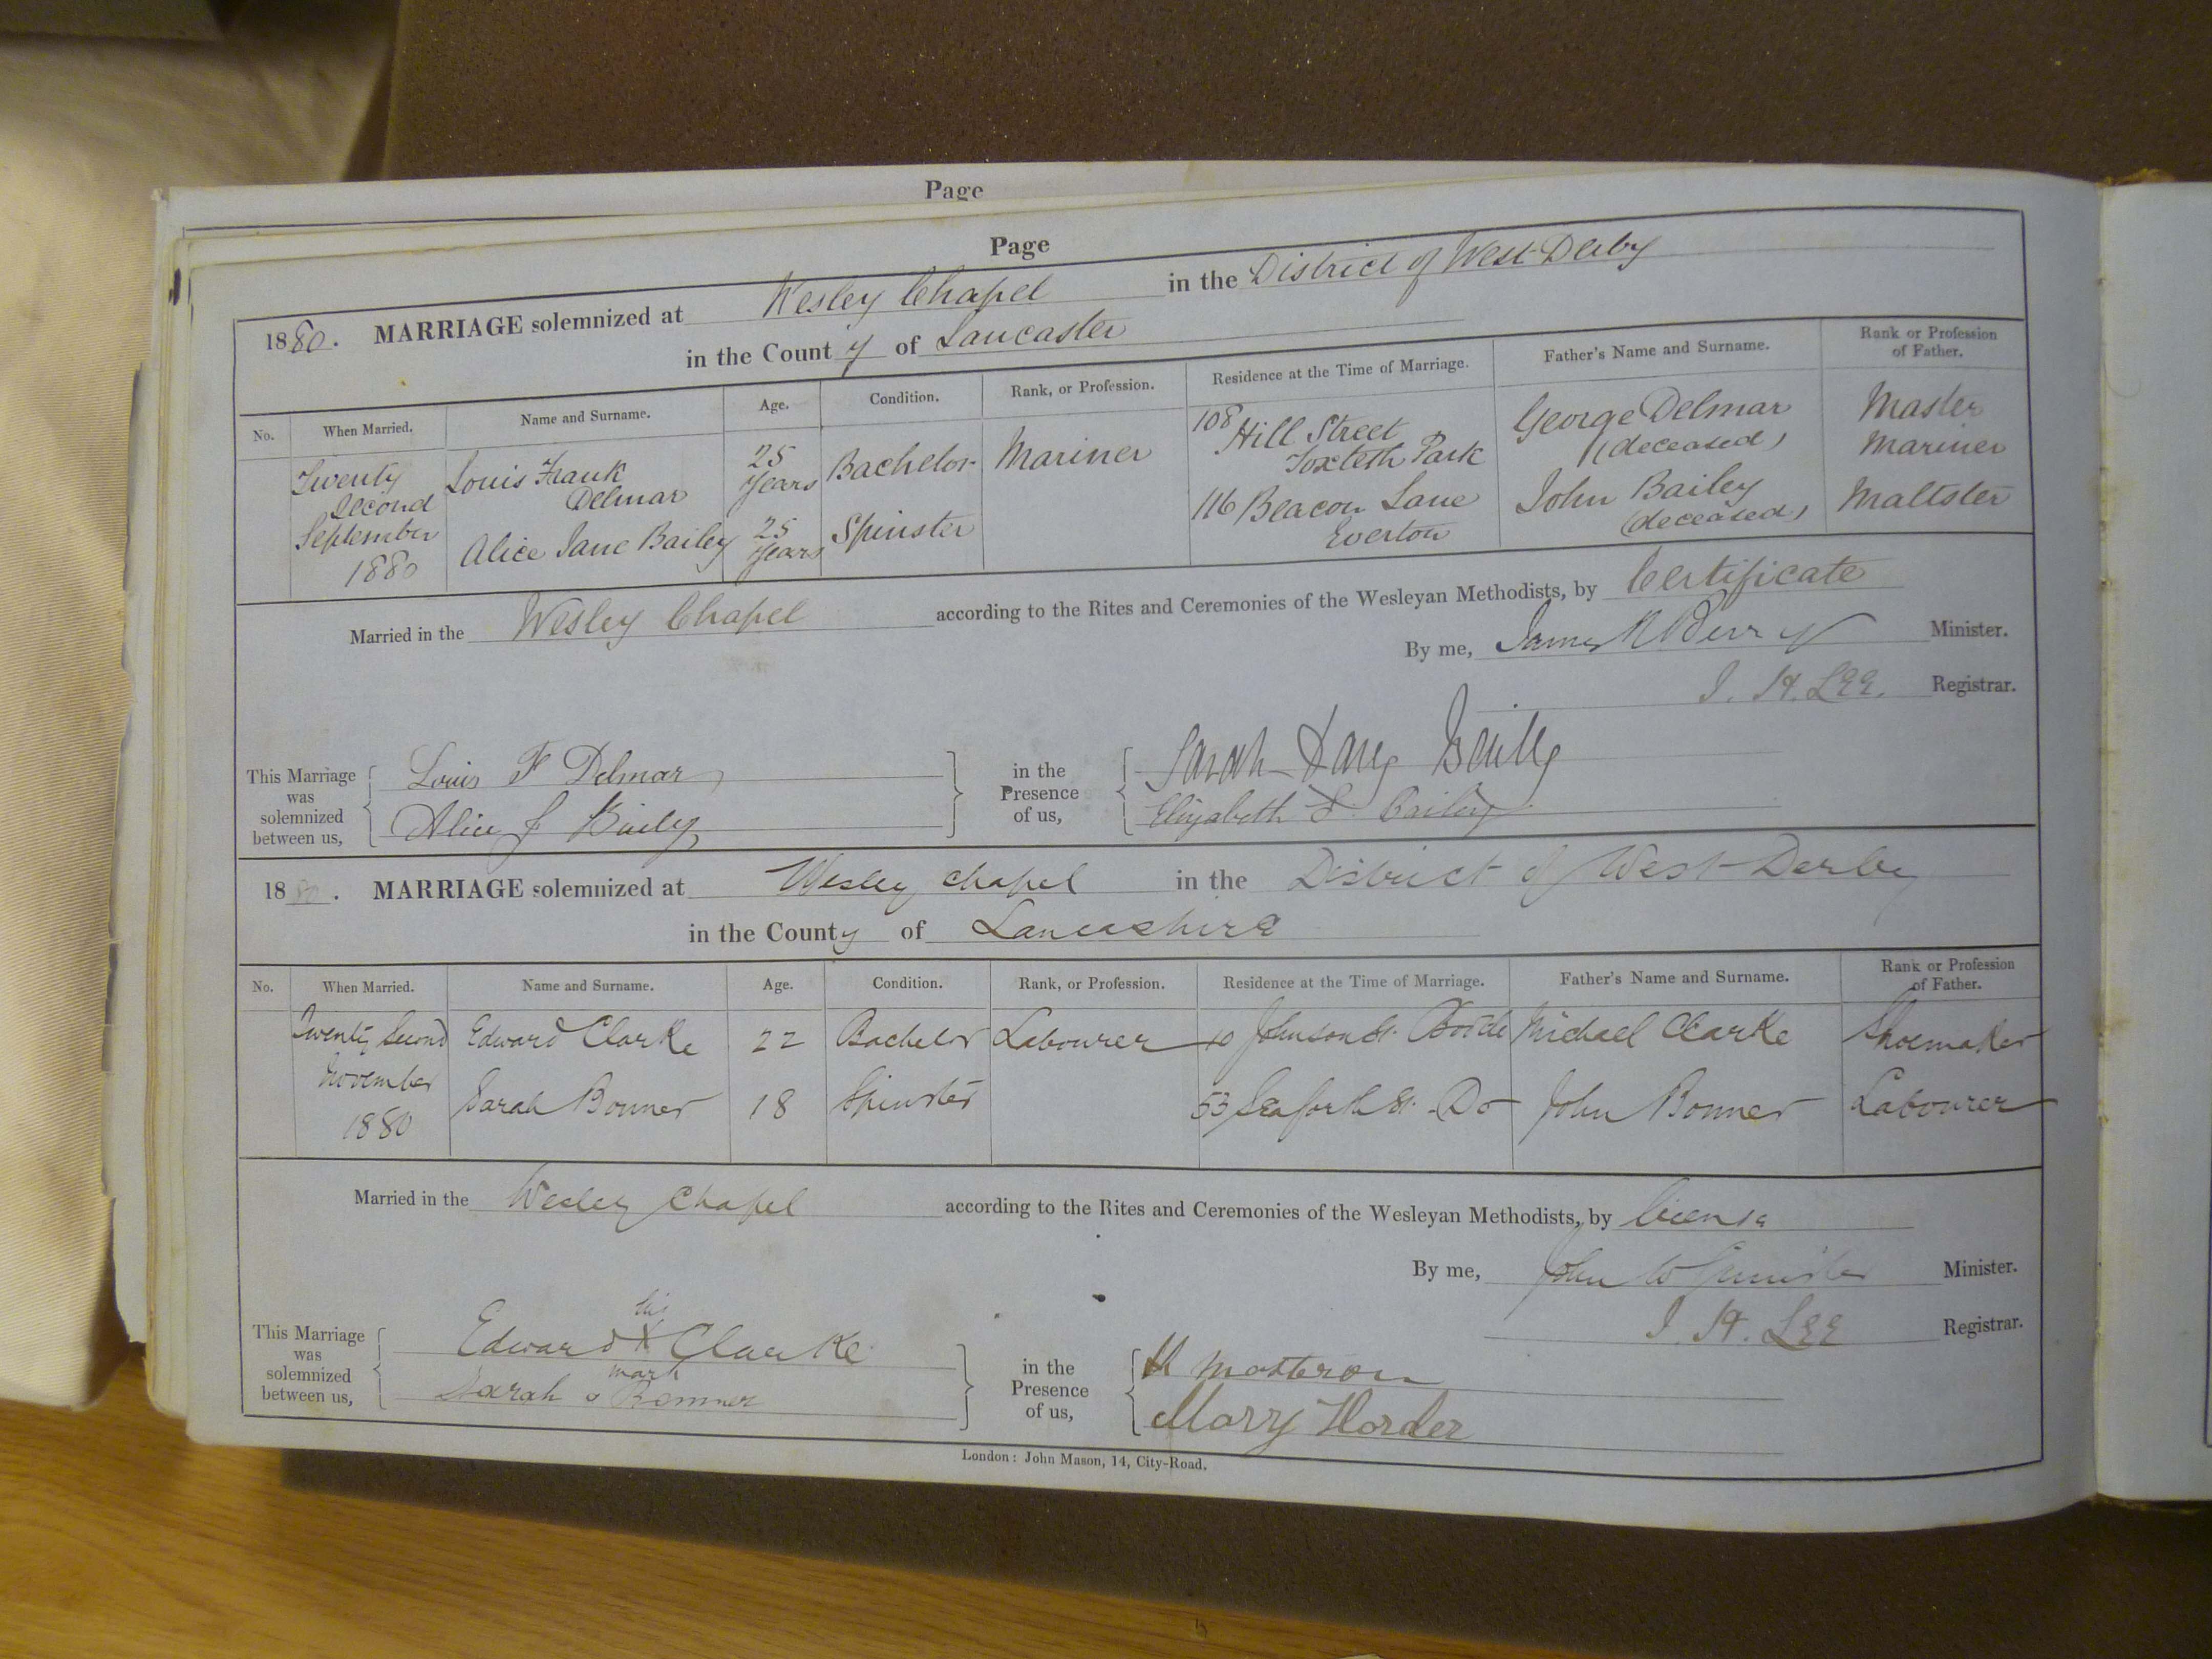 Page
Page
1880. MARRIAGE solemnized at Wesley Chapel in the District of West Derby
in the County of Lancaster
No. When Married. Name and Surname. Age. Condition. Rank, or Profession. Residence at the Time of Marriage. Father's Name and Surname. Rank or Profession of Father.
Twenty Second September 1880
Louis Frank Delmar 25 Years Bachelor Mariner 108 Hill Street Toxteth Park George Delmar (deceased) Master Mariner
Alice Jane Bailey 25 Years Spinster 116 Beacon Lane Everton John Bailey (deceased) Maltster
Married in the Wesley Chapel according to the Rites and Ceremonies of the Wesleyan Methodists, by Certificate
By me, James R Berry Minister.
I. H. Lee. Registrar.
This Marriage was solemnized between us,
Louis F Delmar
Alice J Bailey
in the Presence of us,
Sarah Bailey
Elizabeth Bailey
1880. MARRIAGE solemnized at Wesley Chapel in the District of West Derby
in the County of Lancashire
No. When Married. Name and Surname. Age. Condition. Rank, or Profession. Residence at the Time of Marriage. Father's Name and Surname. Rank or Profession of Father.
Twenty Second November 1880
Edward Clarke 22 Bachelor Labourer 10 Johnson St. Bootle Michael Clarke Shoemaker
Sarah Bonner 18 Spinster 53 Seaforth St. Do John Bonner Labourer
Married in the Wesley Chapel according to the Rites and Ceremonies of the Wesleyan Methodists, by licence
By me, John W Minister.
I. H. Lee Registrar.
This Marriage was solemnized between us,
his
Edward X Clarke
mark
Sarah Bonner
in the Presence of us,
Mary Horder
London: John Mason, 14, City-Road.